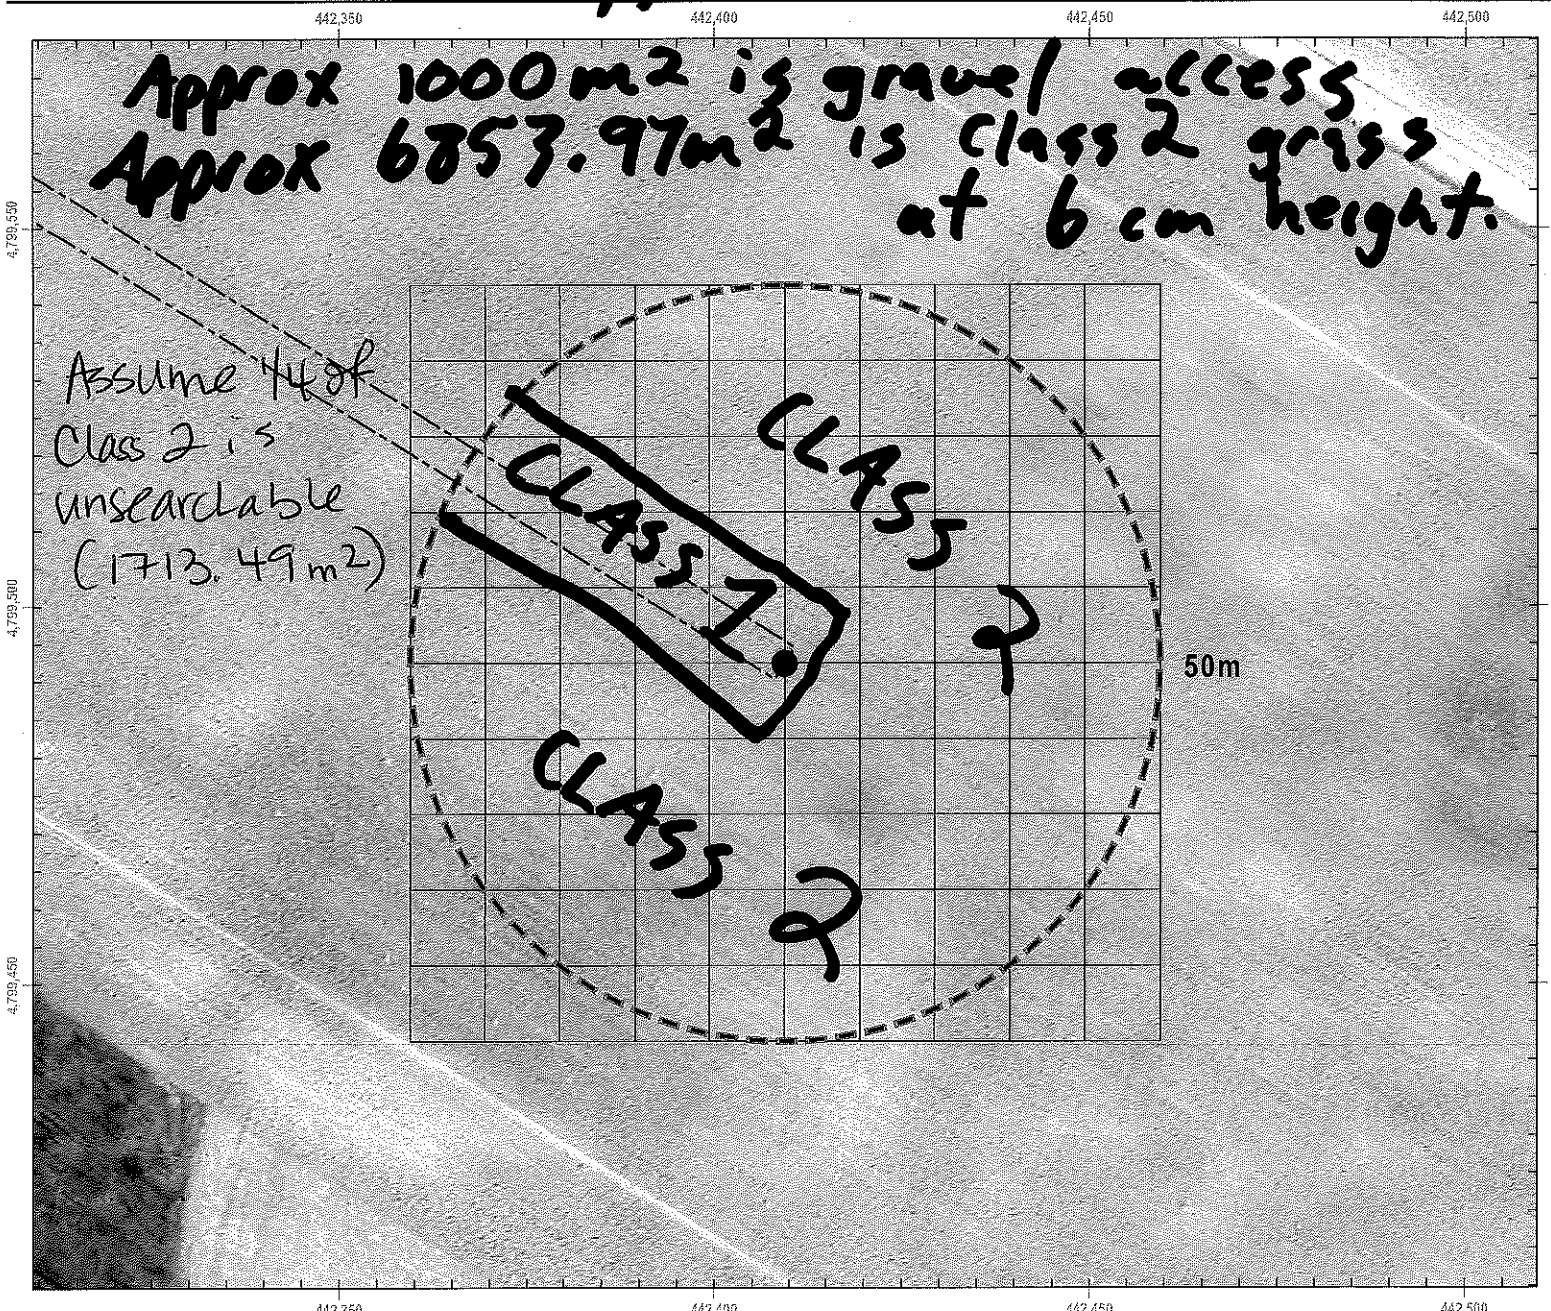 442,350 442,400 442,450 442,500
Approx 1000m2 is gravel access
Approx 6853.97m2 is Class 2 grass
at 6 cm height.
4,799,550
Assume 1/4 of
Class 2 is
unsearchable
(1713.49m2)
CLASS 2
CLASS 1
4,799,500
50m
CLASS 2
4,799,450
442,350 442,400 442,450 442,500